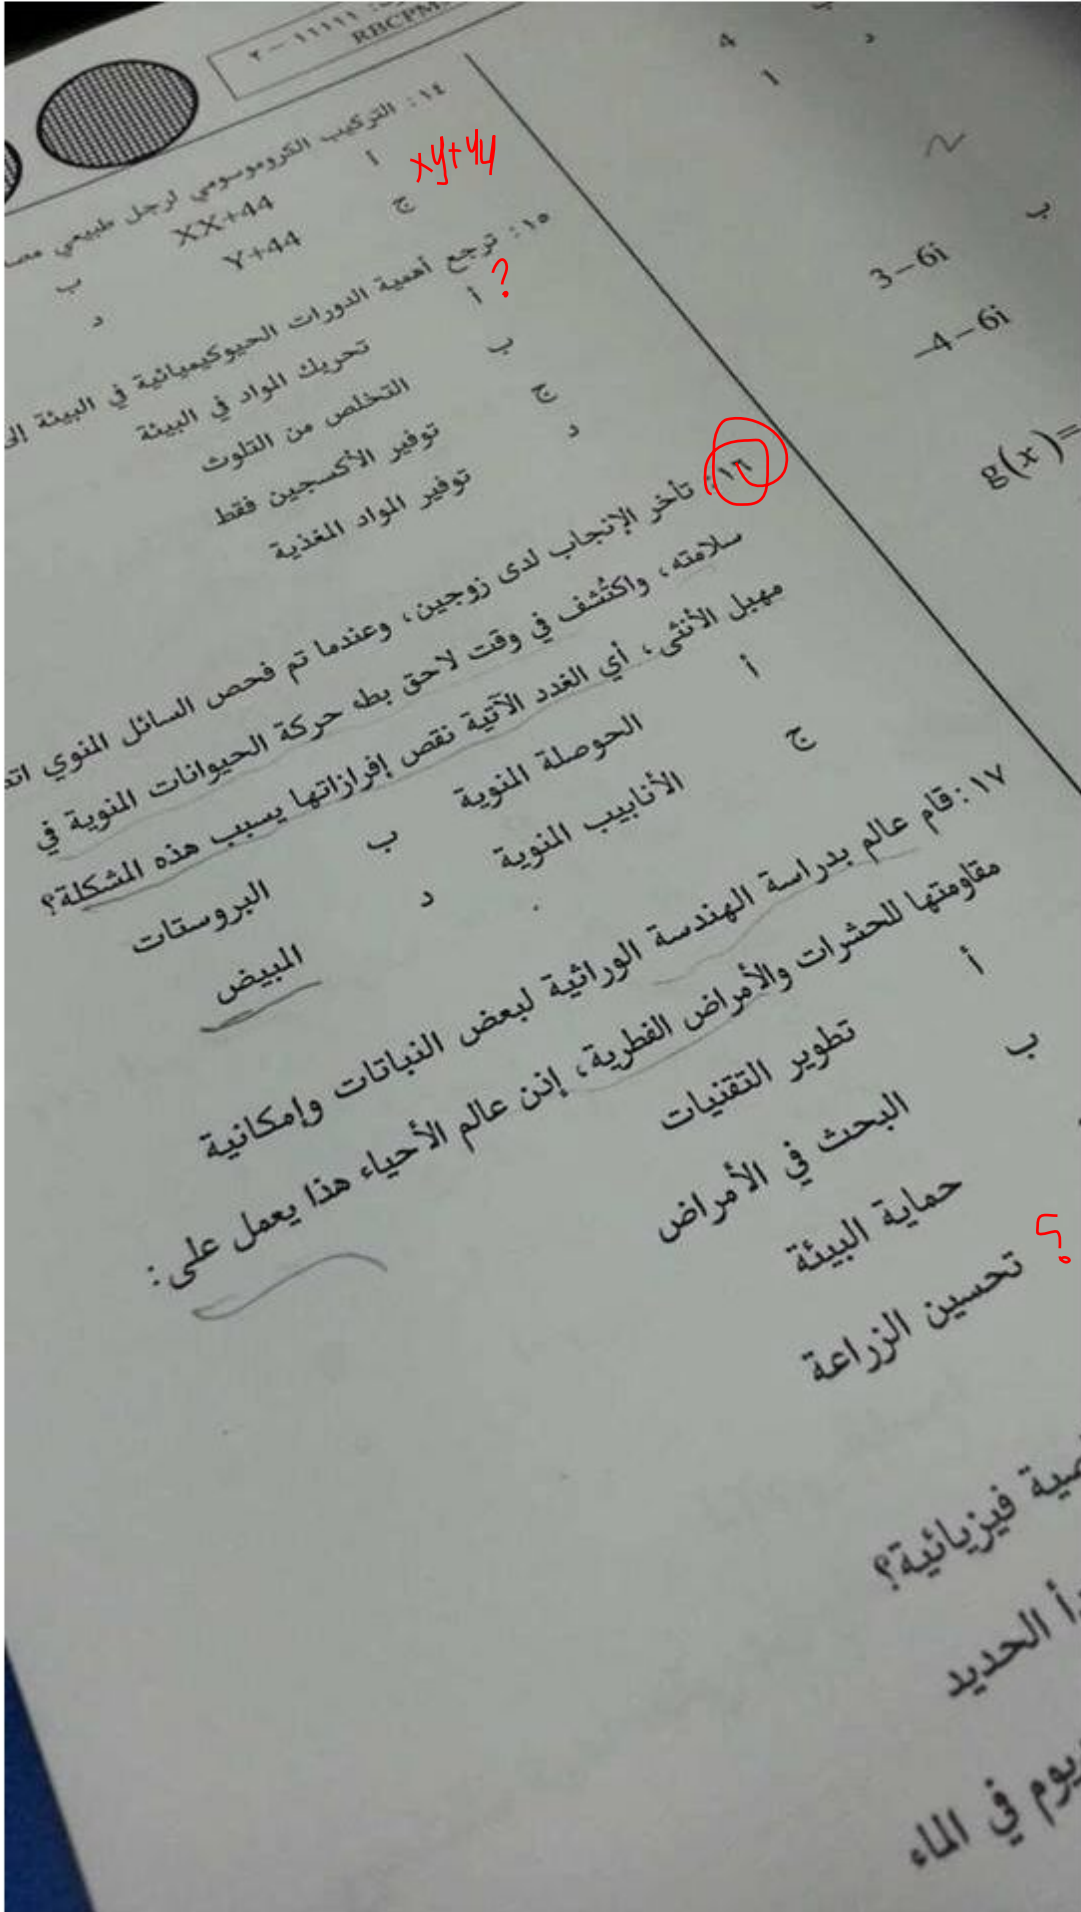 ١١١١١ – ٢
RBCPM
١٤: التركيب الكروموسومي لرجل طبيعي
أ
XX+44
ب
xy+44
ج
Y+44
د
١٥: ترجع أهمية الدورات الحيوكيميائية في البيئة إلى
أ تحريك المواد في البيئة
?
ب التخلص من التلوث
ج توفير الأكسجين فقط
د توفير المواد المغذية
١٦: تأخر الإنجاب لدى زوجين، وعندما تم فحص السائل المنوي
سلامته، واكتُشف في وقت لاحق بطء حركة الحيوانات المنوية في
مهبل الأنثى، أي الغدد الآتية نقص إفرازاتها يسبب هذه المشكلة؟
أ الحوصلة المنوية ب البروستات
ج الأنابيب المنوية د المبيض
١٧: قام عالم بدراسة الهندسة الوراثية لبعض النباتات وإمكانية
مقاومتها للحشرات والأمراض الفطرية، إذن عالم الأحياء هذا يعمل على:
أ تطوير التقنيات
ب البحث في الأمراض
حماية البيئة
تحسين الزراعة
؟
4
د
1
ب
3–6i
–4–6i
g(x)=
فيزيائية؟
الحديد
في الماء